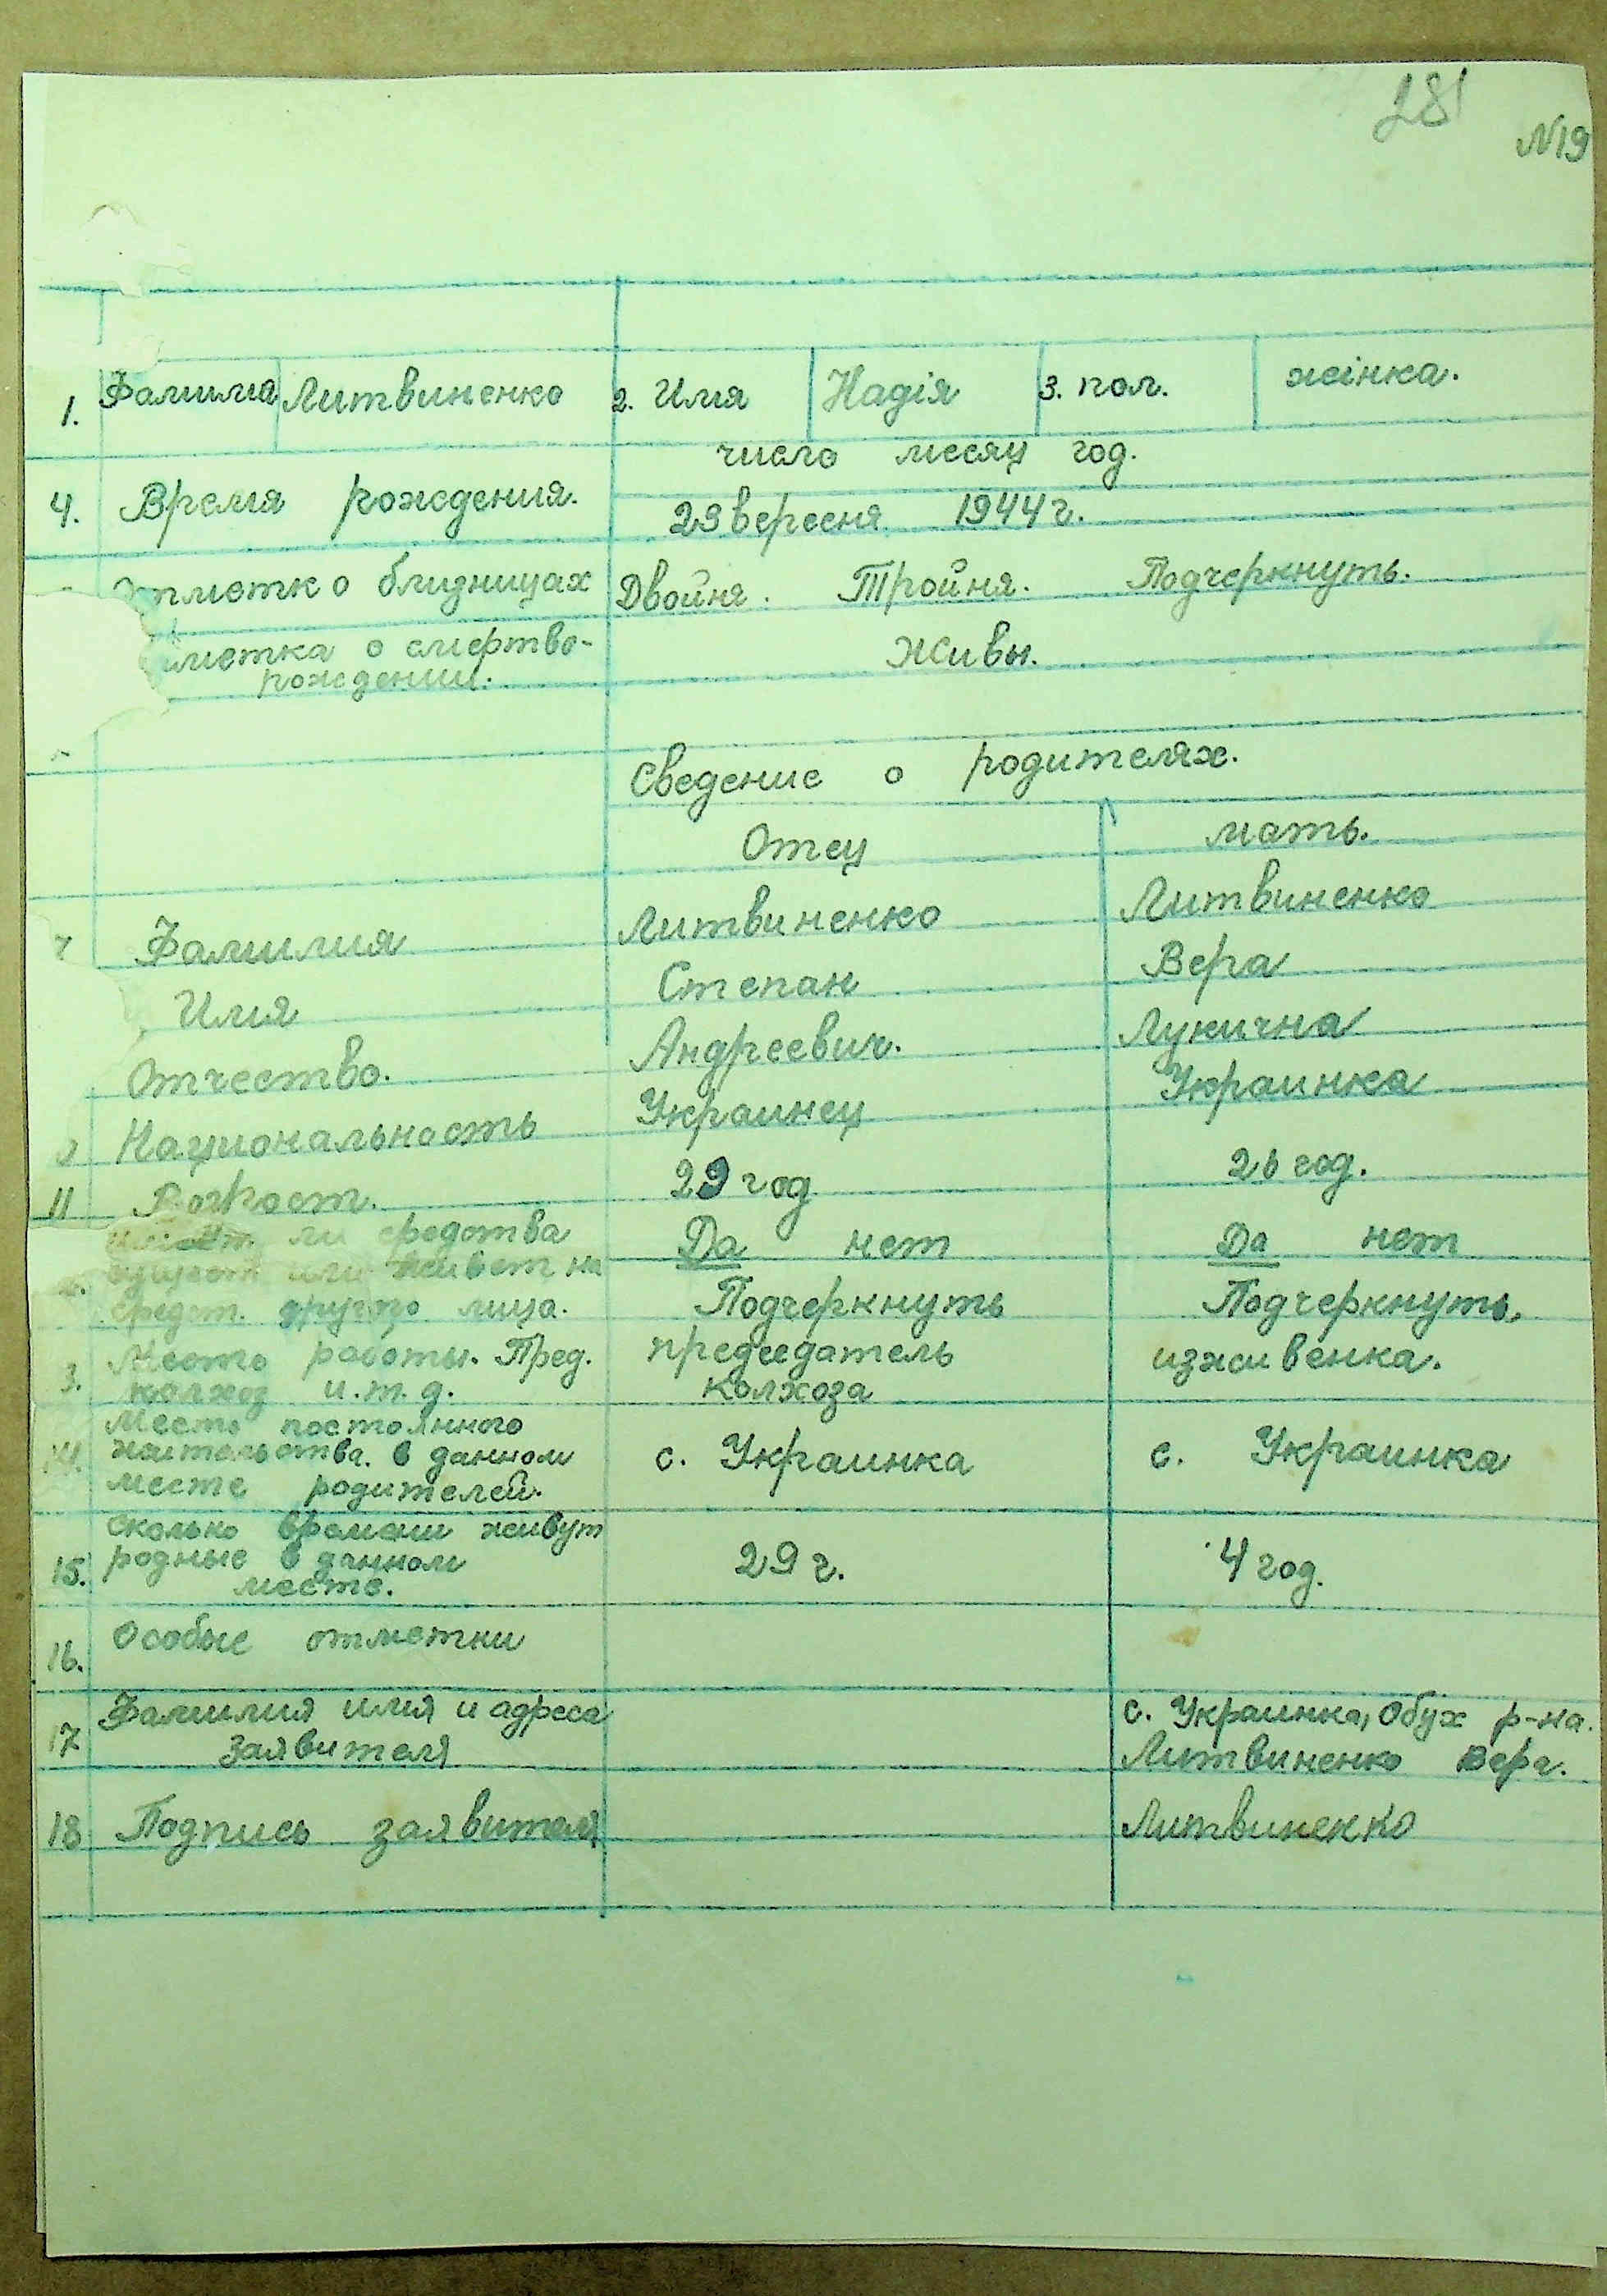 281
№19
1. Фамилия Литвиненко 2. Имя Надія 3. пол. жінка.
число месяц год.
4. Время рождения. 29 вересня 1944 г.
отметк о близницах Двойня. Тройня. Подчеркнуть.
метка о смертво-
рождении. Живы.
Сведение о родителях.
Отец мать.
Фамилия Литвиненко Литвиненко
Имя Степан Вера
Отчество. Андреевич. Лукична
Национальность Украинец Украинка
11 Возрост. 29 год 26 год.
ли средства Да нет Да нет
сущест или живет на
средст. другого лица. Подчеркнуть Подчеркнуть.
3. Место работы. Пред. председатель изживенка.
колхоз и.т.д. колхоза
Место постоянного
14. жительства. в данном с. Украинка с. Украинка
месте родителей.
Сколько времени живут
15. родные в данном 29 г. 4 год.
месте.
16. Особые отметки
Фамилия имя и адреса с. Украинка, Обух р-на.
17 заявителя Литвиненко Вера.
18 Подпись заявителя Литвиненко